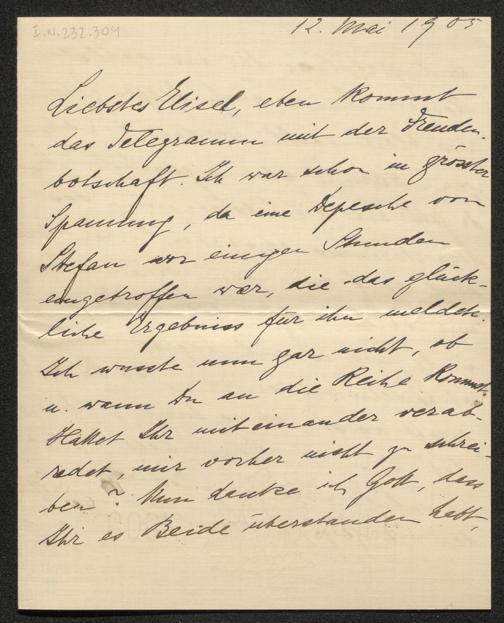 I.N.232.304
12. Mai 1905
Liebstes Elisel, eben kommt
das Telegramm mit der Freuden-
botschaft. Ich war schon in grösster
Spannung, da eine Depesche von
Stefan vor einigen Stunden
eingetroffen war, die das glück-
liche Ergebniss für ihn meldete.
Ich wusste nun gar nicht, ob
u. wann Du an die Reihe kommst.
Hattet Ihr miteinander verab-
redet, mir vorher nicht zu schrei-
ben? Nun danke ich Gott, dass
Ihr es Beide überstanden habt,